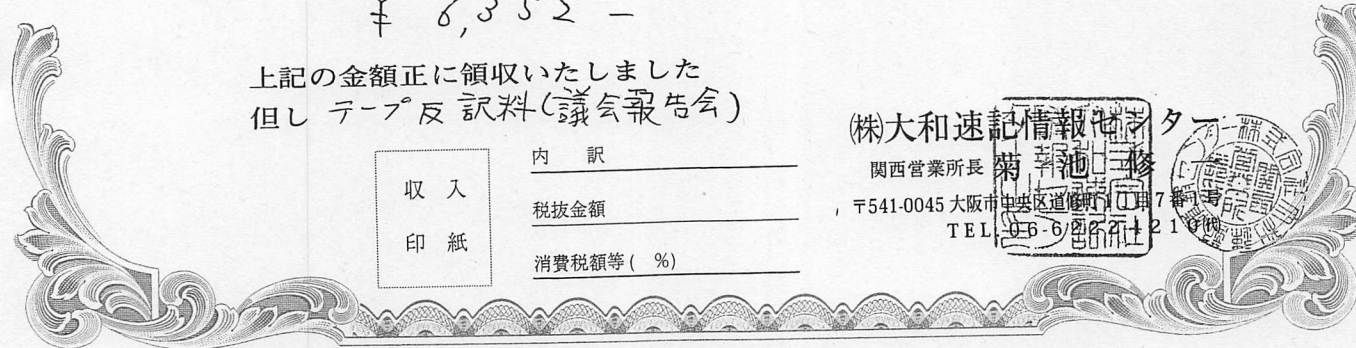 ¥ 6,352 —
上記の金額正に領収いたしました
但し テープ反訳料(議会報告会)
収入
印紙
内 訳
税抜金額
消費税額等( %)
(株)大和速記情報センター
関西営業所長 菊池 修
〒541-0045 大阪市中央区道修町1丁目7番1号
TEL.06-6222-1210㈹